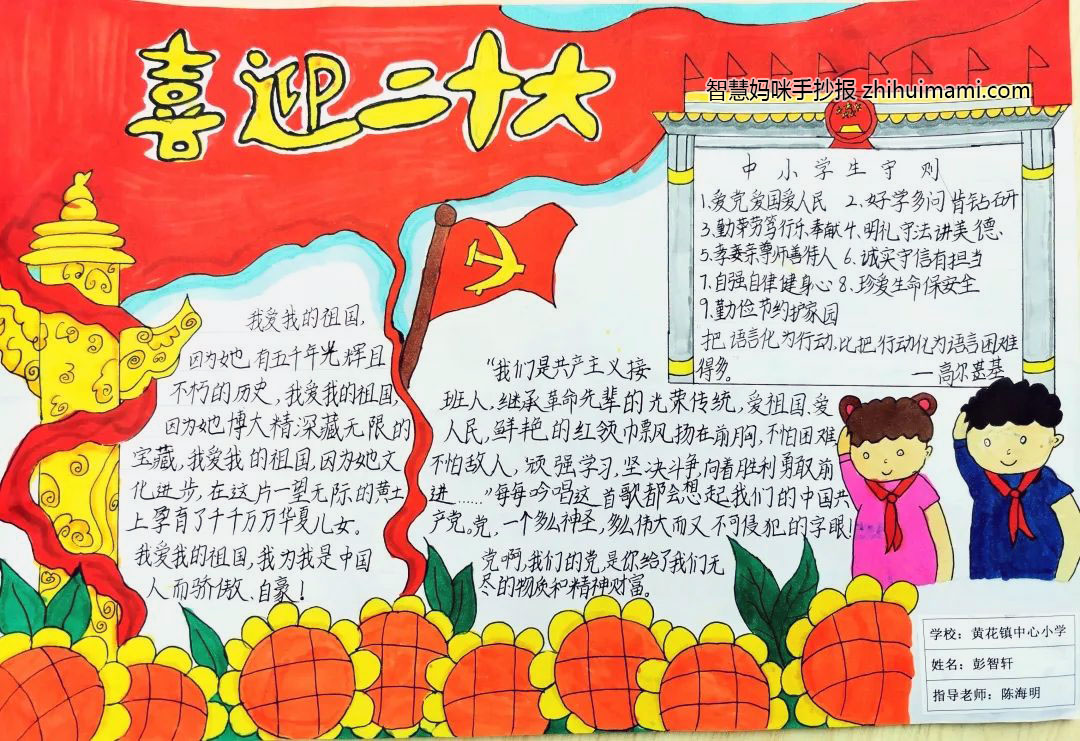 喜迎二十大
智慧妈咪手抄报 zhihuimami.com
中小学生守则
1.爱党爱国爱人民 2.好学多问肯钻研
3.勤劳笃行乐奉献 4.明礼守法讲美德
5.孝亲尊师善待人 6.诚实守信有担当
7.自强自律健身心 8.珍爱生命保安全
9.勤俭节约护家园
把语言化为行动,比把行动化为语言困难
得多。 —高尔基
我爱我的祖国,
因为她有五千年光辉且
不朽的历史,我爱我的祖国,
因为她博大精深藏无限的
宝藏,我爱我的祖国,因为她文
化进步,在这片一望无际的黄土
上孕育了千千万万华夏儿女。
我爱我的祖国,我为我是中国
人而骄傲、自豪!
“我们是共产主义接
班人,继承革命先辈的光荣传统,爱祖国、爱
人民,鲜艳的红领巾飘扬在前胸,不怕困难
不怕敌人,顽强学习,坚决斗争,向着胜利勇敢前
进……”每每吟唱这首歌都会想起我们的中国共
产党。党,一个多么神圣,多么伟大而又不可侵犯的字眼!
党啊,我们的党是你给了我们无
尽的物质和精神财富。
学校：黄花镇中心小学
姓名：彭智轩
指导老师：陈海明